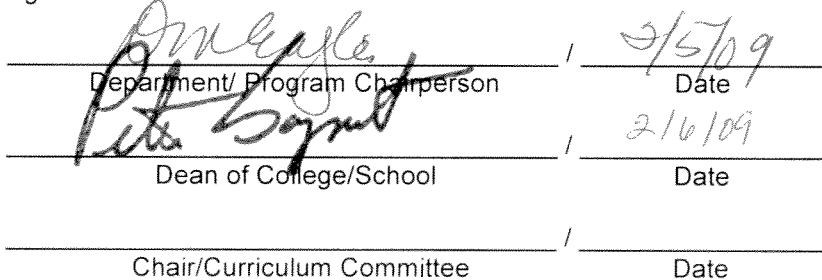 / 2/5/09
Department/ Program Chairperson Date
Peter / 2/6/09
Dean of College/School Date
/
Chair/Curriculum Committee Date